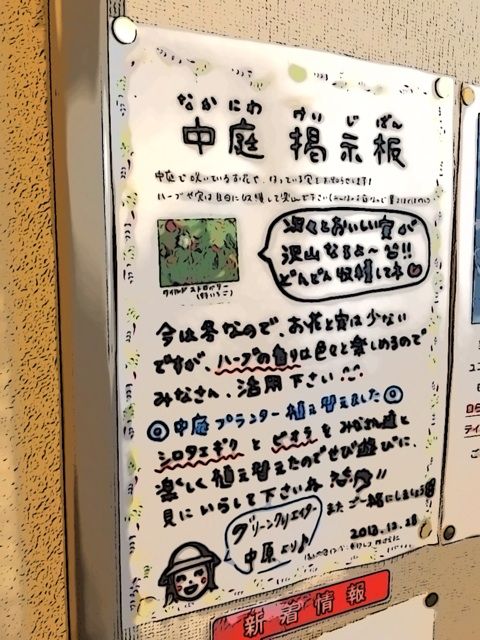 なかにわ けいじばん
中庭 掲示板
中庭で咲いているお花や、なっている実をお知らせします！
ハーブや実は自由に収穫して
次々とおいしい実が
沢山なるよ〜!!
どんどん収穫してネ
ワイルドストロベリー
(野いちご)
今は冬なので、お花と実は少ない
ですが、ハーブの香りは色々と楽しめるので
みなさん、活用下さい
◎中庭プランター植え替えました◎
シロタエギク と ビオラ を みなさん達と
楽しく植え替えたのでぜひ遊びに、
見にいらして下さいね
またご一緒にしましょう
グリーンクリエイター
中原より♪
2013.12.28
新着情報